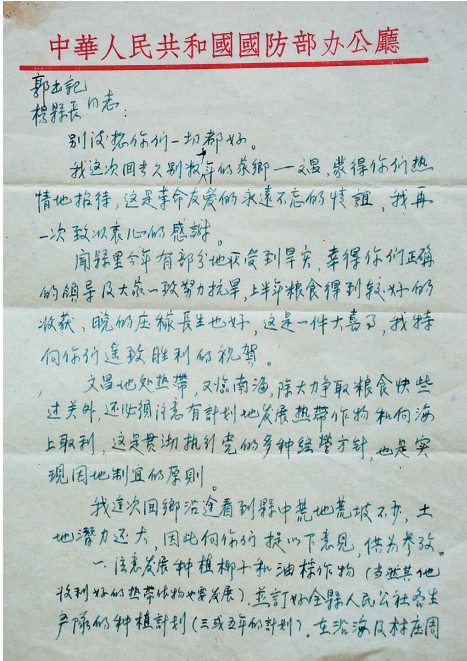 中華人民共和國國防部办公廳
郭书記
楊縣長 同志：
别後您你们一切都好。
我这次回去久别数十年的家鄉——文昌，蒙得你们热
情地招待，这是革命友爱的永远不忘的情誼，我再
一次致以衷心的感謝。
闻縣里今年有部分地区受到旱灾，幸得你们正确
的領导及大家一致努力抗旱，上半年粮食得到較好的
收获，晚的庄稼長生也好，这是一件大喜事，我特
向你们遥致胜利的祝賀。
文昌地处热帶，又临南海，除大力争取粮食快些
过关外，还必須注意有計划地发展热帶作物和向海
上取利，这是贯彻执行党的多种経营方針，也是实
現因地制宜的原則。
我这次回鄉沿途看到縣中荒地荒坡不少，土
地潛力还大，因此向你们提以下意見，供为参攷。
一、注意发展种植椰子和油棕作物（当然其他
收利好的热帶作物也要发展），並訂好全縣人民公社各生
产隊的种植計划（三或五年的計划）。在沿海及村庄周